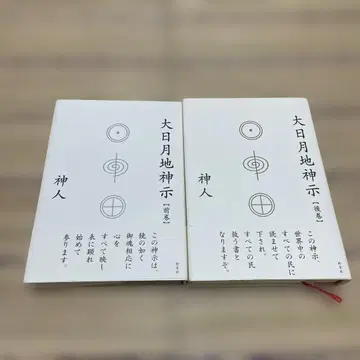 大日月地神示【前巻】
神人
この神示は、
鏡の如く
御魂相応に
心を
すべて映し
表に顕れ
始めて
参ります。
大日月地神示【後巻】
神人
この神示
世界中の
すべての民に
読ませて
下され。
すべての民
救う書と
なりますぞ。